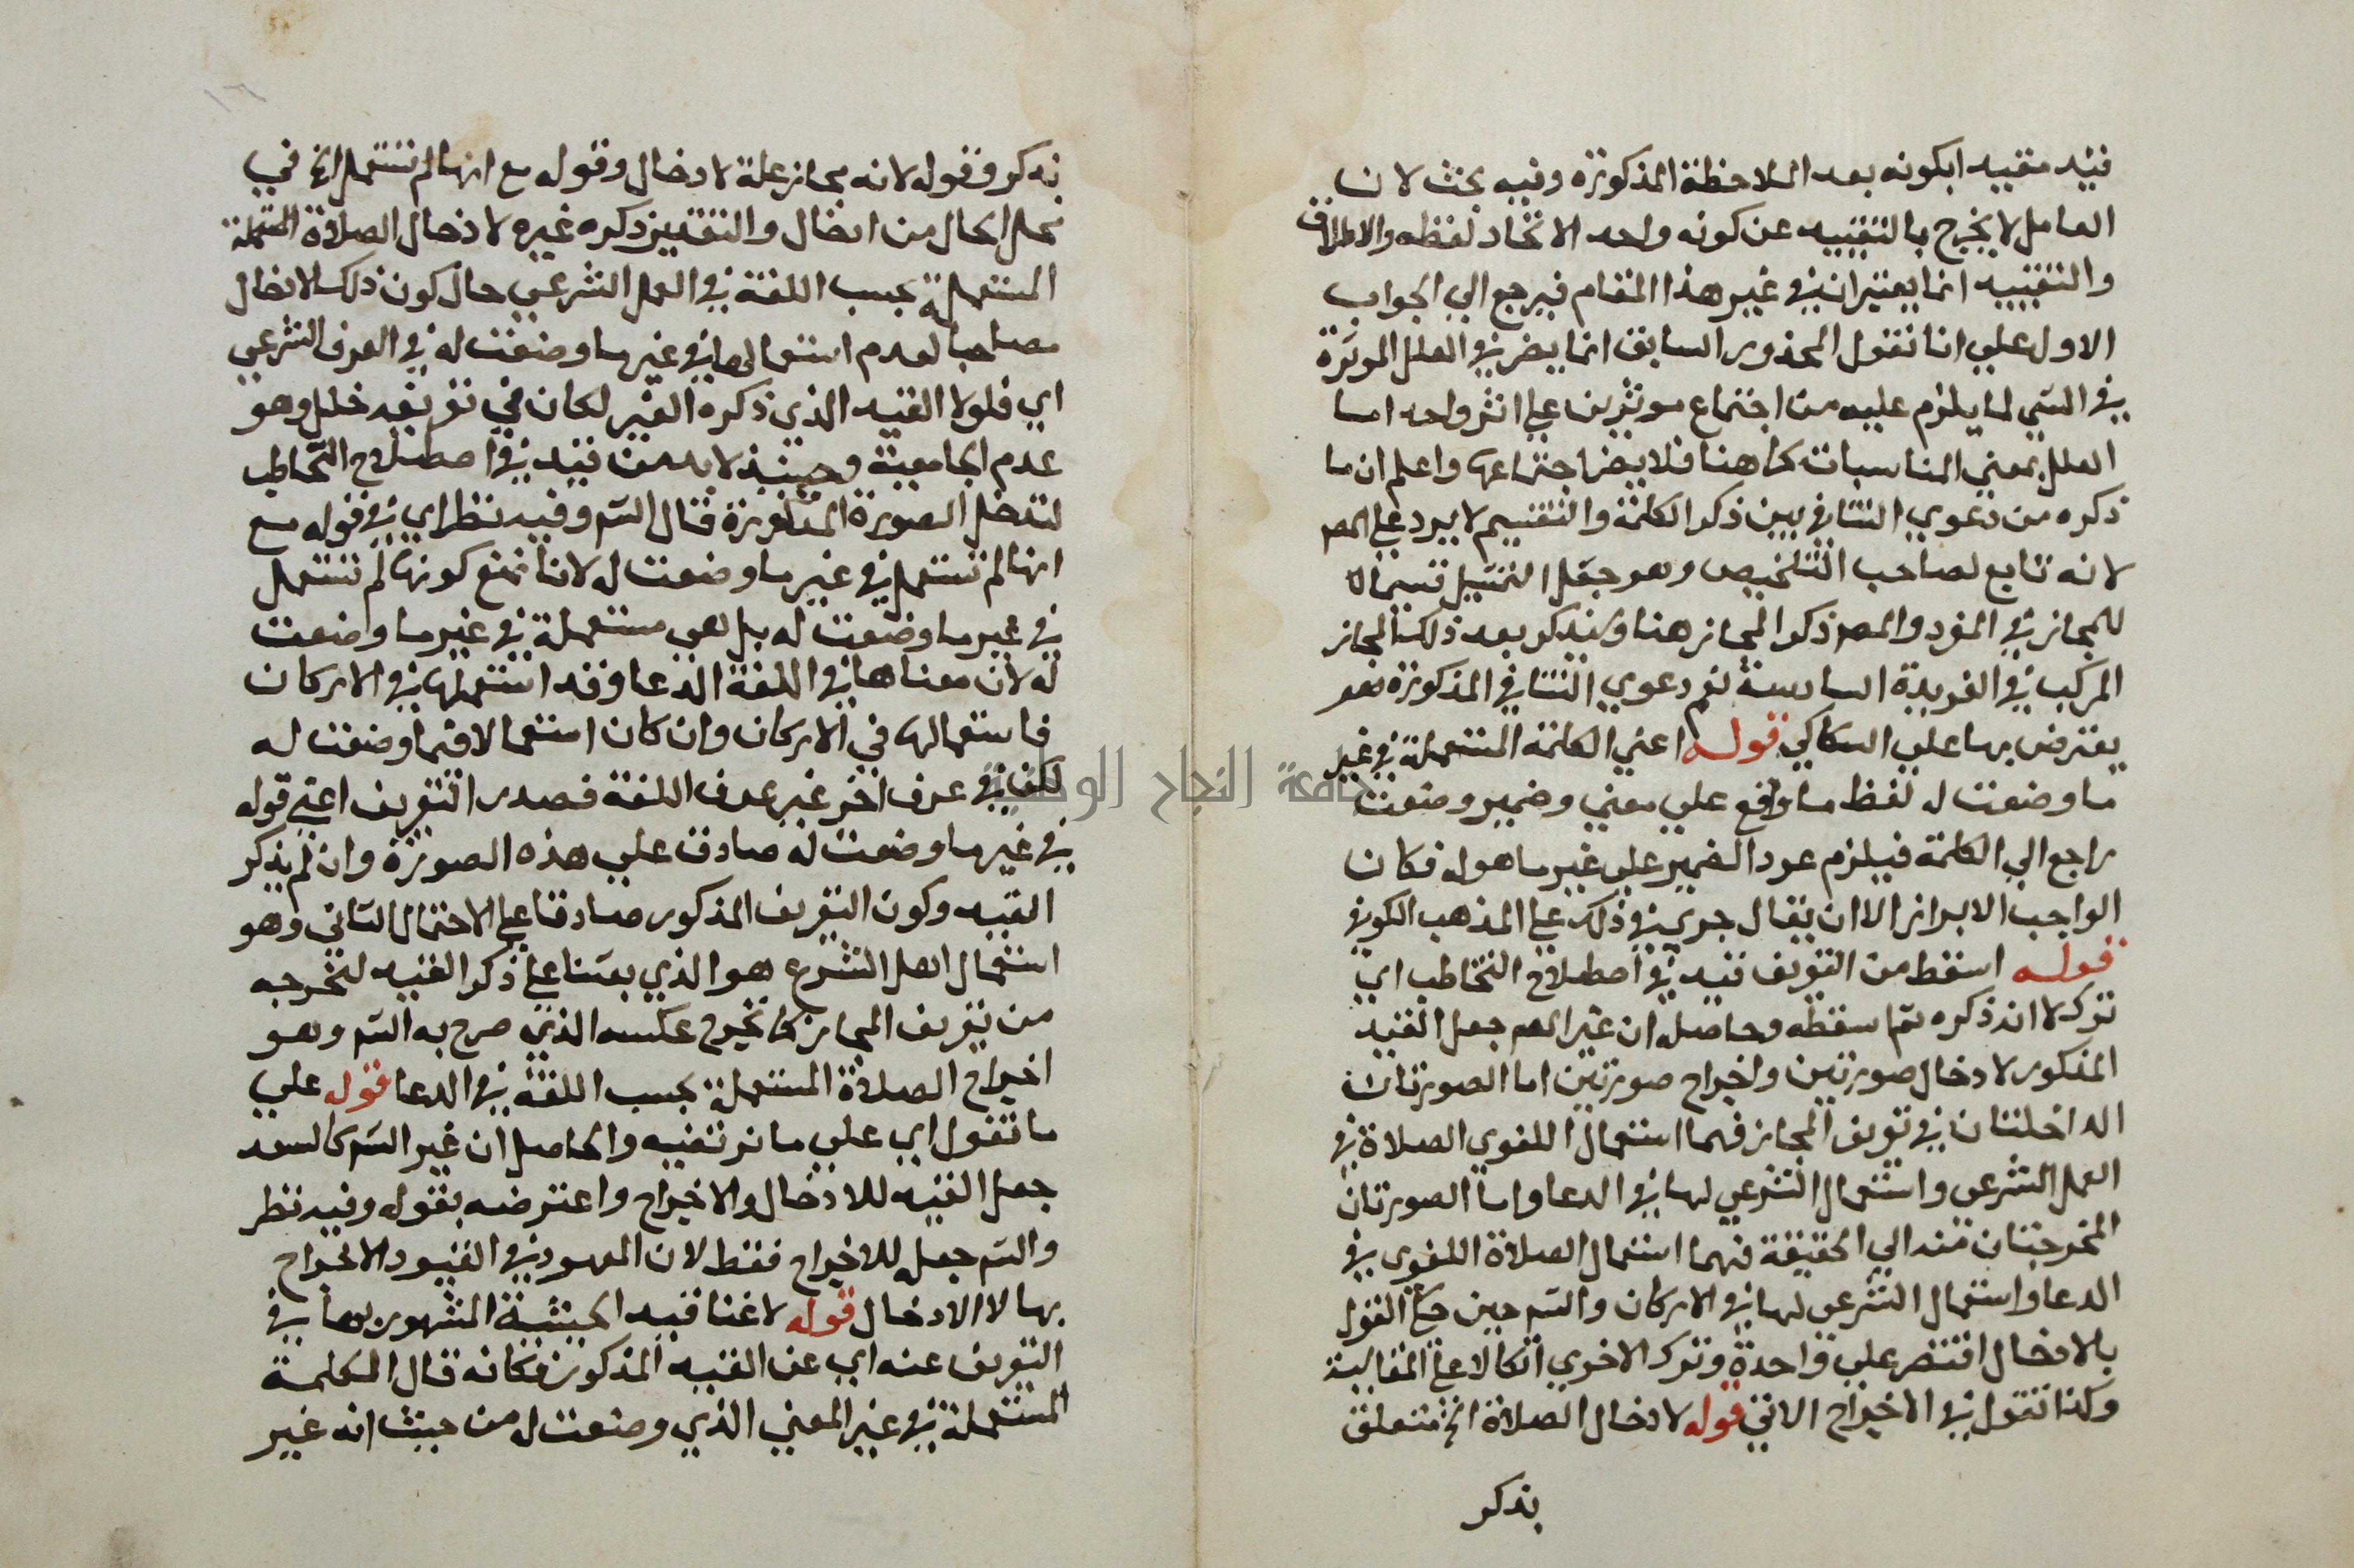 قيد مقيد ابكونه بعد الملاحظة المذكورة وفيه بحث لان
العامل لا يخرج بالتقييد عن كونه واحد الاتحاد لفظه والاطلاق
والتقييد انما يعتبران في غير هذا المقام فيرجع الي الجواب
الاول علي انا نقول المحذور السابق انما يضر في العلل الموثرة
في الشي لما يلزم عليه من اجتماع موثرين علي اثر واحد اما
العلل بمعني المناسبات كما هنا فلا يضر اجتماعها واعلم ان ما
ذكره من دعوي التنافي بين ذكر الكلمة والتقسيم لا يرد علي المص
لانه تابع لصاحب التلخيص وهو جعل التمثيل قسيما
للمجاز في المفرد والمص ذكر المجاز هنا وسيذكر بعد ذلك المجاز
المركب في الفريدة السادسة نعم دعوي التنافي المذكورة هو
يعترض بها علي السكاكي قوله اعني الكلمة المستعملة في غير
ما وضعت له لفظ ما واقع علي معني وضمير وضعت
راجع الي الكلمة فيلزم عود الضمير علي غير ما هو له فكان
الواجب الابراز الا ان يقال جري في ذلك علي المذهب الكوفي
قوله اسقط من التعريف قيد في اصطلاح التخاطب اي
تركه لا انه ذكره ثم اسقطه وحاصله ان غير المص جعل القيد
المذكور لادخال صورتين واخراج صورتين اما الصورتان
الداخلتان في تعريف المجاز فهما استعمال اللغوي الصلاة في
العمل الشرعي واستعمال الشرعي لها في الدعا واما الصورتان
المخرجتان منه الي الحقيقة فهما استعمال الصلاة اللغوي في
الدعا واستعمال الشرعي لها في الاركان والشم حين القول
بالادخال اقتصر علي واحدة وترك الاخري اتكالا علي المقابلة
وكذا نقول في الاخراج الاتي قوله لادخال الصلاة الخ متعلق
بذكر
بذكر وقوله لانه مجاز علة لادخال وقوله مع انها لم تستعمل الخ في
محل الحال من ادخال والتقدير ذكره غيره لادخال الصلاة
المستعملة بحسب اللغة في العمل الشرعي حال كون ذلك الادخال
مصاحبا لعدم استعمالها في غير ما وضعت له في العرف الشرعي
اي فلولا القيد الذي ذكره الغير لكان في تعريفه خلل وهو
عدم الجامعية وحينئذ لا بد من قيد في اصطلاح التخاطب
لتدخل الصورة المذكورة قال الشم وفيه نظر اي في قوله مع
انها لم تستعمل في غير ما وضعت له لانا نمنع كونها لم تستعمل
في غير ما وضعت له بل هي مستعملة في غير ما وضعت
له لان معناها في اللغة الدعا وقد استعملها في الاركان
فاستعمالها في الاركان وان كان استعمالا فيما وضعت له
لكن في عرف اخر غير عرف اللغة فصدر التعريف اعني قوله
في غير ما وضعت له صادق علي هذه الصورة وان لم يذكر
القيد وكون التعريف المذكور صادقا علي الاحتمال الثاني وهو
استعمال اهل الشرع هو الذي بعثنا علي ذكر القيد لنخرجه
من تعريف المجاز كما نخرج عكسه الذي صرح به الشم وهو
اخراج الصلاة المستعملة بحسب اللغة في الدعا قوله علي
ما نقول اي علي ما نرتضيه والحاصل ان غير الشم كالسعد
جعل القيد للادخال والاخراج واعترضه بقوله وفيه نظر
والشم جعله للاخراج فقط لان المعهود في القيود الاخراج
بها لا الادخال قوله لاغنا قيد الحيثية المشهور بها في
التعريف عنه اي عن القيد المذكور فكانه قال الكلمة
المستعملة في غير المعني الذي وضعت له من حيث انه غير
جامعة النجاح الوطنية